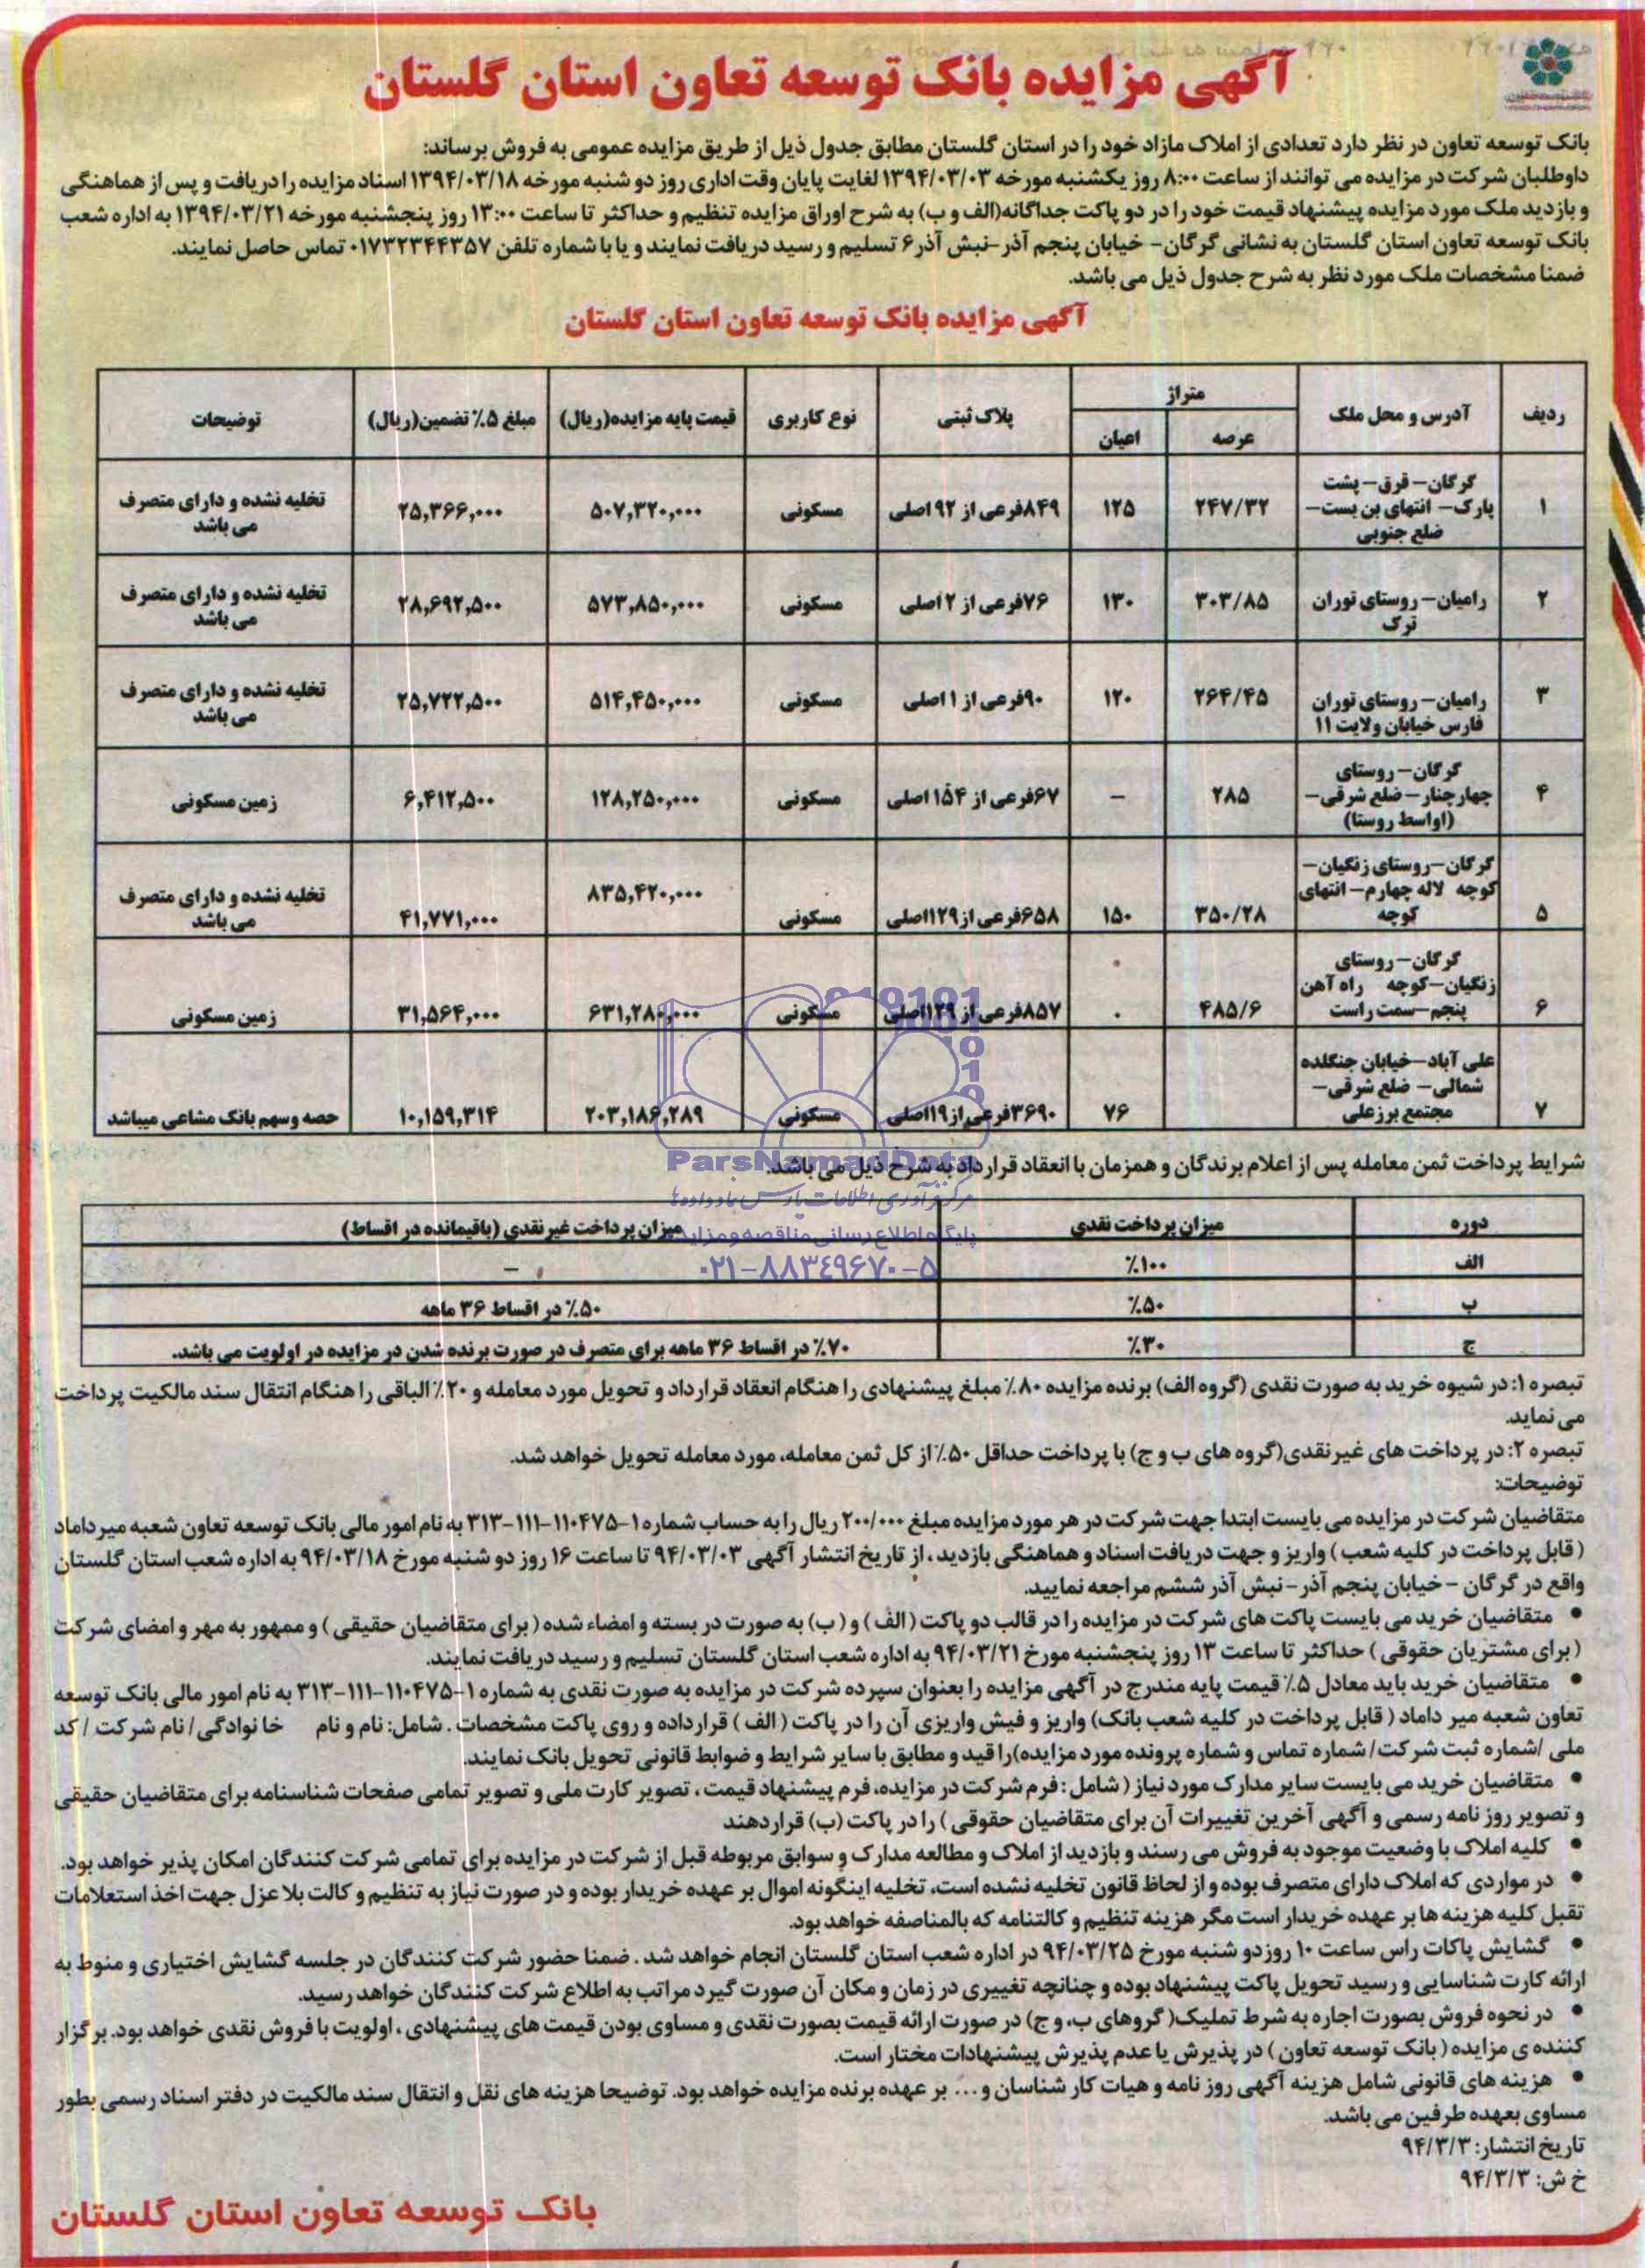 آگهی مزایده بانک توسعه تعاون استان گلستان
بانک توسعه تعاون در نظر دارد تعدادی از املاک مازاد خود را در استان گلستان مطابق جدول ذیل از طریق مزایده عمومی به فروش برساند:
داوطلبان شرکت در مزایده می توانند از ساعت ۸:۰۰ روز یکشنبه مورخه ۱۳۹۴/۰۳/۰۳ لغایت پایان وقت اداری روز دو شنبه مورخه ۱۳۹۴/۰۳/۱۸ اسناد مزایده را دریافت و پس از هماهنگی
و بازدید ملک مورد مزایده پیشنهاد قیمت خود را در دو پاکت جداگانه(الف و ب) به شرح اوراق مزایده تنظیم و حداکثر تا ساعت ۱۳:۰۰ روز پنجشنبه مورخه ۱۳۹۴/۰۳/۲۱ به اداره شعب
بانک توسعه تعاون استان گلستان به نشانی گرگان- خیابان پنجم آذر-نبش آذر۶ تسلیم و رسید دریافت نمایند و یا با شماره تلفن ۰۱۷۳۲۳۴۴۳۵۷ تماس حاصل نمایند.
ضمنا مشخصات ملک مورد نظر به شرح جدول ذیل می باشد.
آگهی مزایده بانک توسعه تعاون استان گلستان
ردیف آدرس و محل ملک متراژ پلاک ثبتی نوع کاربری قیمت پایه مزایده(ریال) مبلغ ۵٪ تضمین(ریال) توضیحات
عرصه اعیان
گرگان- قرق- پشت
۱ پارک- انتهای بن بست- ۲۴۷/۳۲ ۱۲۵ ۸۴۹فرعی از ۹۲ اصلی مسکونی ۵۰۷,۳۲۰,۰۰۰ ۲۵,۳۶۶,۰۰۰ تخلیه نشده و دارای متصرف
ضلع جنوبی می باشد
۲ رامیان- روستای توران ۳۰۳/۸۵ ۱۳۰ ۷۶فرعی از ۲ اصلی مسکونی ۵۷۳,۸۵۰,۰۰۰ ۲۸,۶۹۲,۵۰۰ تخلیه نشده و دارای متصرف
ترک می باشد
۳ رامیان- روستای توران ۲۶۴/۴۵ ۱۲۰ ۹۰فرعی از ۱ اصلی مسکونی ۵۱۴,۴۵۰,۰۰۰ ۲۵,۷۲۲,۵۰۰ تخلیه نشده و دارای متصرف
فارس خیابان ولایت ۱۱ می باشد
گرگان- روستای
۴ چهارچنار- ضلع شرقی- ۲۸۵ - ۶۷فرعی از ۱۵۴ اصلی مسکونی ۱۲۸,۲۵۰,۰۰۰ ۶,۴۱۲,۵۰۰ زمین مسکونی
(اواسط روستا)
گرگان-روستای زنگیان-
کوچه لاله چهارم- انتهای ۸۳۵,۴۲۰,۰۰۰ تخلیه نشده و دارای متصرف
۵ کوچه ۳۵۰/۲۸ ۱۵۰ ۶۵۸فرعی از۱۲۹اصلی مسکونی ۴۱,۷۷۱,۰۰۰ می باشد
گرگان- روستای
زنگیان-کوچه راه آهن
۶ پنجم-سمت راست ۴۸۵/۶ ۰ ۸۵۷فرعی از ۱۲۹اصلی مسکونی ۶۳۱,۲۸۰,۰۰۰ ۳۱,۵۶۴,۰۰۰ زمین مسکونی
علی آباد-خیابان جنگلده
شمالی- ضلع شرقی-
۷ مجتمع برزعلی ۷۶ ۳۶۹۰فرعی از۱۹اصلی مسکونی ۲۰۳,۱۸۶,۲۸۹ ۱۰,۱۵۹,۳۱۴ حصه وسهم بانک مشاعی میباشد
شرایط پرداخت ثمن معامله پس از اعلام برندگان و همزمان با انعقاد قرارداد به شرح ذیل می باشد.
ParsNamadData
پایگاه اطلاع رسانی مناقصه و مزایده
۰۲۱-۸۸۳۴۹۶۷۰-۵
دوره میزان پرداخت نقدی میزان پرداخت غیر نقدی (باقیمانده در اقساط)
الف ۱۰۰٪ -
ب ۵۰٪ ۵۰٪ در اقساط ۳۶ ماهه
ج ۳۰٪ ۷۰٪ در اقساط ۳۶ ماهه برای متصرف در صورت برنده شدن در مزایده در اولویت می باشد.
تبصره ۱: در شیوه خرید به صورت نقدی (گروه الف) برنده مزایده ۸۰٪ مبلغ پیشنهادی را هنگام انعقاد قرارداد و تحویل مورد معامله و ۲۰٪ الباقی را هنگام انتقال سند مالکیت پرداخت
می نماید.
تبصره ۲: در پرداخت های غیرنقدی(گروه های ب و ج) با پرداخت حداقل ۵۰٪ از کل ثمن معامله، مورد معامله تحویل خواهد شد.
توضیحات:
متقاضیان شرکت در مزایده می بایست ابتدا جهت شرکت در هر مورد مزایده مبلغ ۲۰۰/۰۰۰ ریال را به حساب شماره ۱-۱۱۰۴۷۵-۱۱۱-۳۱۳ به نام امور مالی بانک توسعه تعاون شعبه میرداماد
(قابل پرداخت در کلیه شعب) واریز و جهت دریافت اسناد و هماهنگی بازدید، از تاریخ انتشار آگهی ۹۴/۰۳/۰۳ تا ساعت ۱۶ روز دو شنبه مورخ ۹۴/۰۳/۱۸ به اداره شعب استان گلستان
واقع در گرگان - خیابان پنجم آذر-نبش آذر ششم مراجعه نمایید.
• متقاضیان خرید می بایست پاکت های شرکت در مزایده را در قالب دو پاکت (الف) و (ب) به صورت در بسته و امضاء شده (برای متقاضیان حقیقی) و ممهور به مهر و امضای شرکت
(برای مشتریان حقوقی) حداکثر تا ساعت ۱۳ روز پنجشنبه مورخ ۹۴/۰۳/۲۱ به اداره شعب استان گلستان تسلیم و رسید دریافت نمایند.
• متقاضیان خرید باید معادل ۵٪ قیمت پایه مندرج در آگهی مزایده را بعنوان سپرده شرکت در مزایده به صورت نقدی به شماره ۱-۱۱۰۴۷۵-۱۱۱-۳۱۳ به نام امور مالی بانک توسعه
تعاون شعبه میر داماد (قابل پرداخت در کلیه شعب بانک) واریز و فیش واریزی آن را در پاکت (الف) قرارداده و روی پاکت مشخصات. شامل: نام و نام خانوادگی/ نام شرکت / کد
ملی /شماره ثبت شرکت/ شماره تماس و شماره پرونده مورد مزایده)را قید و مطابق با سایر شرایط و ضوابط قانونی تحویل بانک نمایند.
• متقاضیان خرید می بایست سایر مدارک مورد نیاز (شامل: فرم شرکت در مزایده، فرم پیشنهاد قیمت، تصویر کارت ملی و تصویر تمامی صفحات شناسنامه برای متقاضیان حقیقی
و تصویر روز نامه رسمی و آگهی آخرین تغییرات آن برای متقاضیان حقوقی) را در پاکت (ب) قراردهند
• کلیه املاک با وضعیت موجود به فروش می رسند و بازدید از املاک و مطالعه مدارک و سوابق مربوطه قبل از شرکت در مزایده برای تمامی شرکت کنندگان امکان پذیر خواهد بود.
• در مواردی که املاک دارای متصرف بوده و از لحاظ قانون تخلیه نشده است، تخلیه اینگونه اموال بر عهده خریدار بوده و در صورت نیاز به تنظیم وکالت بلاعزل جهت اخذ استعلامات
تقبل کلیه هزینه ها بر عهده خریدار است مگر هزینه تنظیم وکالتنامه که بالمناصفه خواهد بود.
• گشایش پاکات راس ساعت ۱۰ روز دو شنبه مورخ ۹۴/۰۳/۲۵ در اداره شعب استان گلستان انجام خواهد شد. ضمنا حضور شرکت کنندگان در جلسه گشایش اختیاری و منوط به
ارائه کارت شناسایی و رسید تحویل پاکت پیشنهاد بوده و چنانچه تغییری در زمان و مکان آن صورت گیرد مراتب به اطلاع شرکت کنندگان خواهد رسید.
• در نحوه فروش بصورت اجاره به شرط تملیک( گروهای ب، و ج) در صورت ارائه قیمت بصورت نقدی و مساوی بودن قیمت های پیشنهادی، اولویت با فروش نقدی خواهد بود. برگزار
کننده ی مزایده (بانک توسعه تعاون) در پذیرش یا عدم پذیرش پیشنهادات مختار است.
• هزینه های قانونی شامل هزینه آگهی روز نامه و هیات کار شناسان و... بر عهده برنده مزایده خواهد بود. توضیحا هزینه های نقل و انتقال سند مالکیت در دفتر اسناد رسمی بطور
مساوی بعهده طرفین می باشد.
تاریخ انتشار: ۹۴/۳/۳
خ ش: ۹۴/۳/۳
بانک توسعه تعاون استان گلستان